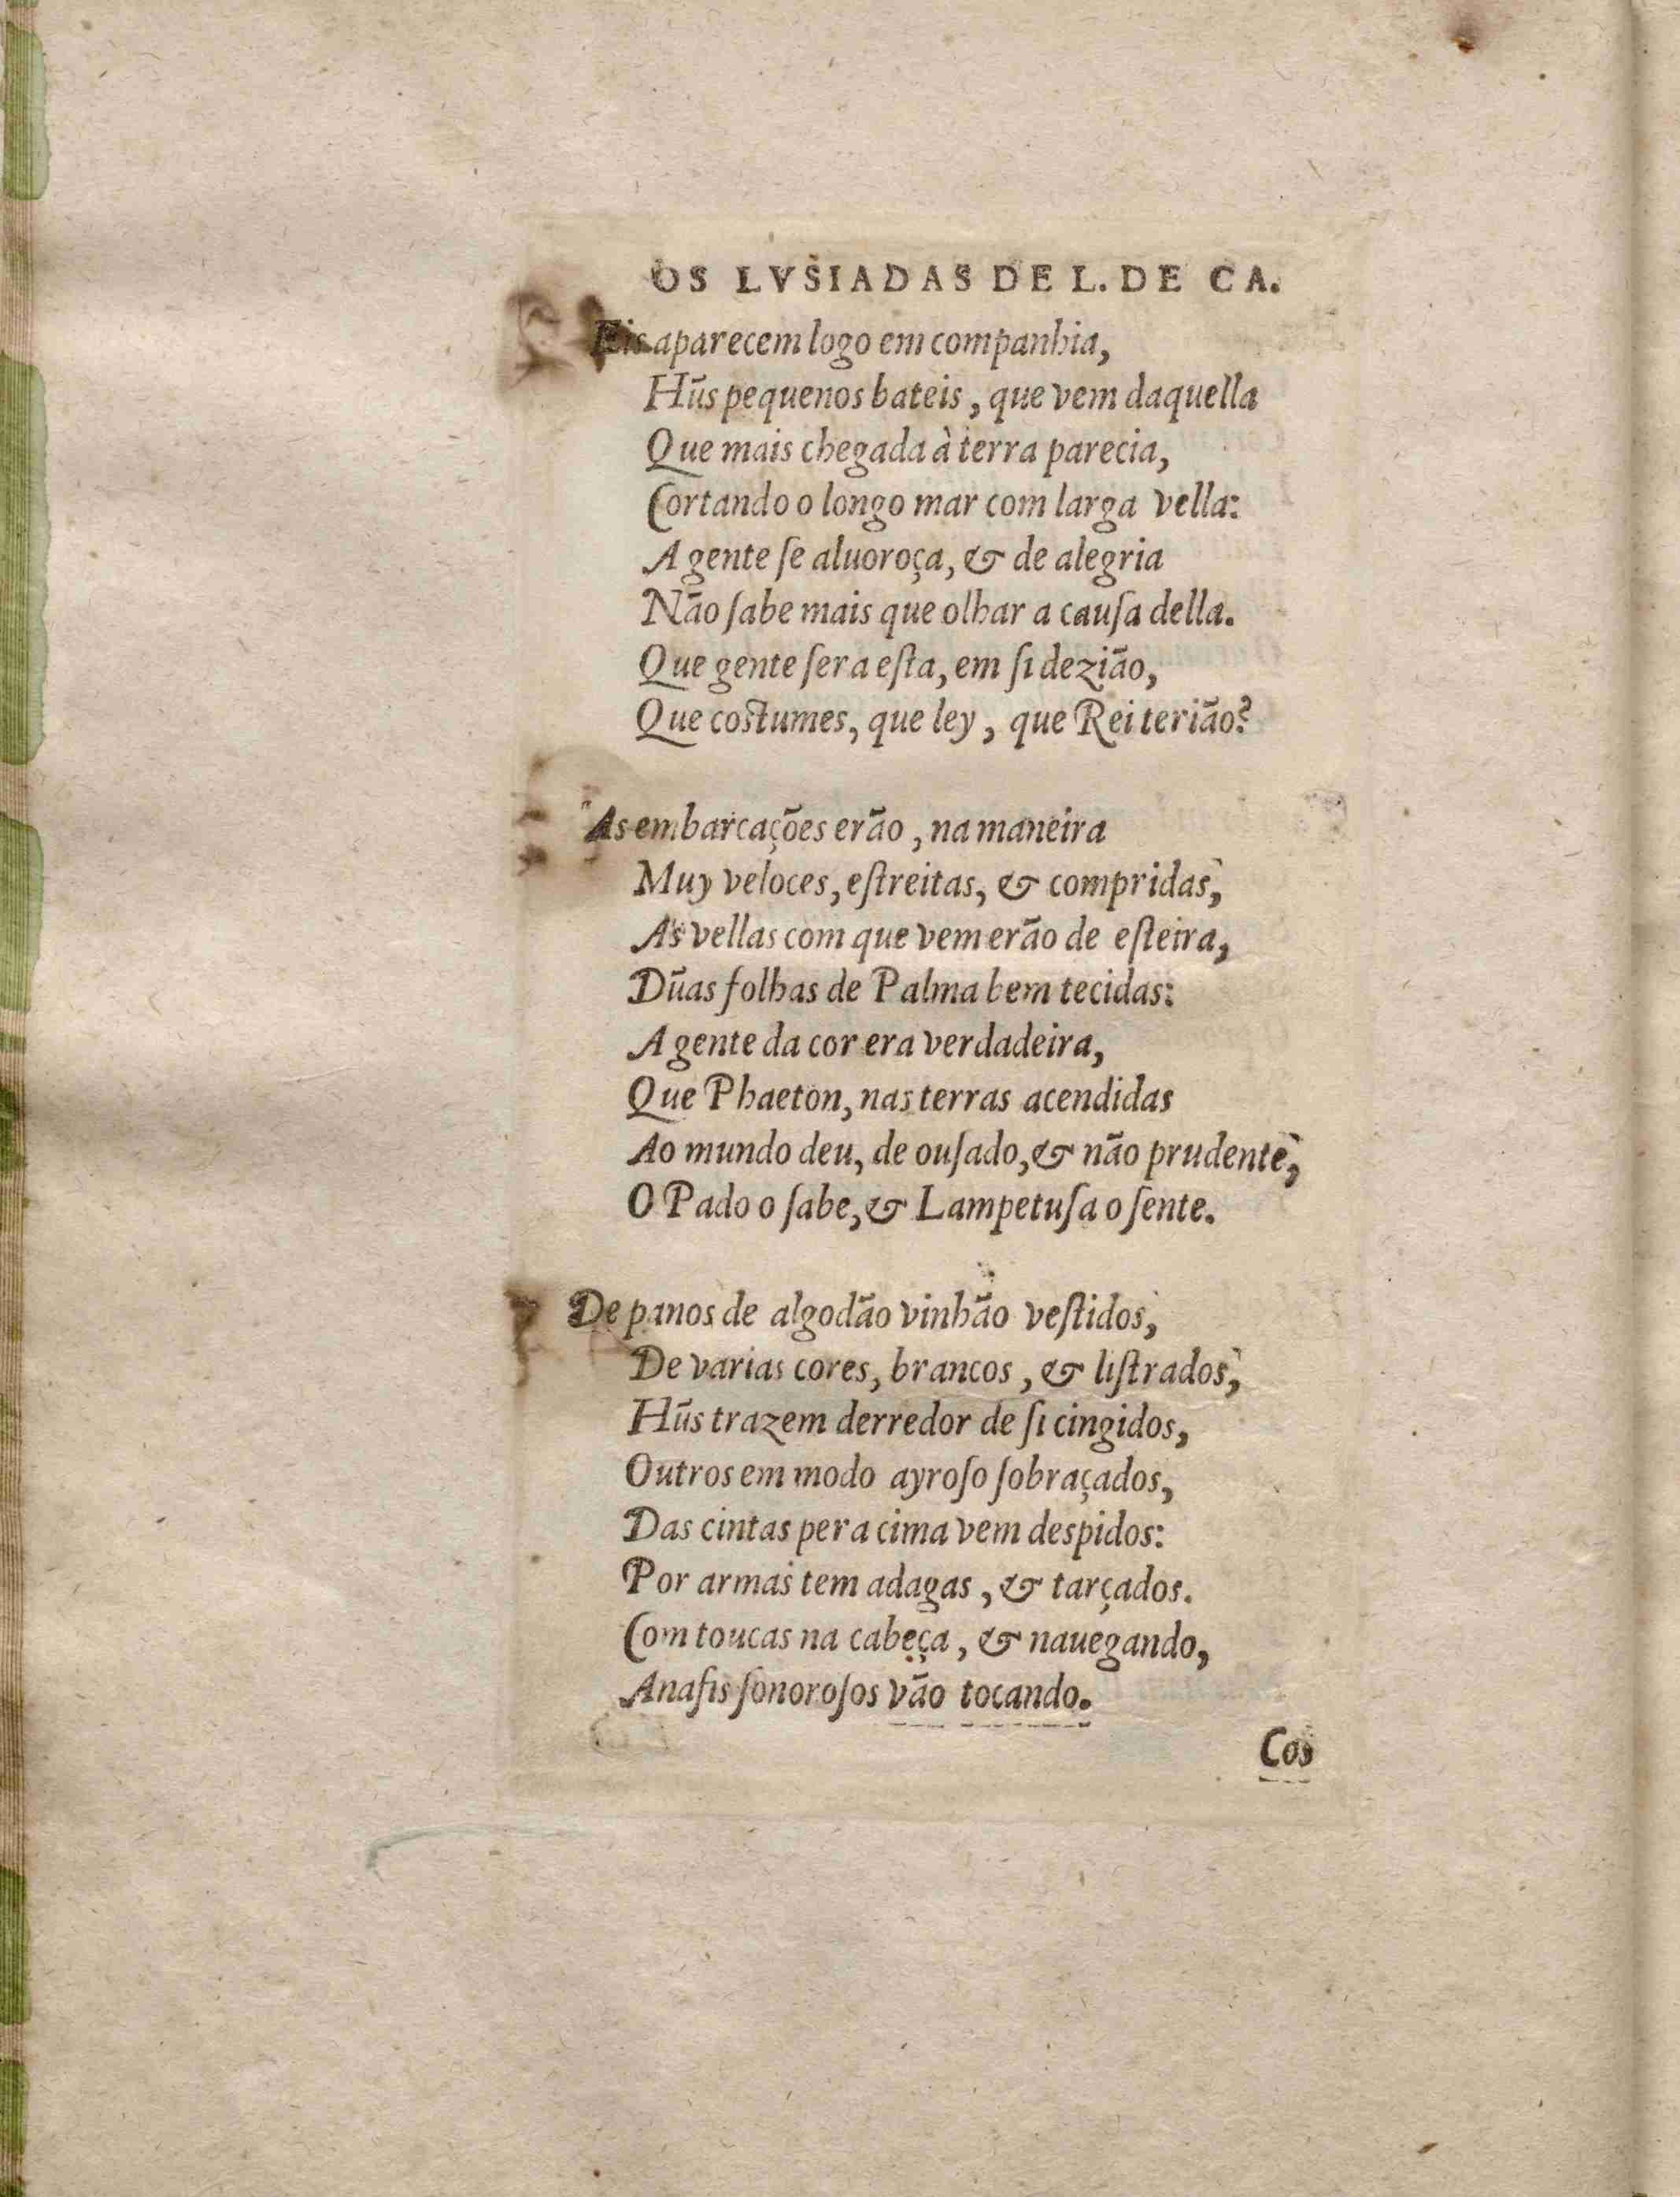 OS LVSIADAS DE L. DE CA.
Eis aparecem logo em companhia,
Hũs pequenos bateis, que vem daquella
Que mais chegada à terra parecia,
Cortando o longo mar com larga vella:
A gente ſe aluoroça, & de alegria
Não ſabe mais que olhar a cauſa della.
Que gente ſera eſta, em ſi dezião,
Que coſtumes, que ley, que Rei terião?
As embarcações erão, na maneira
Muy veloces, eſtreitas, & compridas,
As vellas com que vem erão de eſteira,
Dũas folhas de Palma bem tecidas:
A gente da cor era verdadeira,
Que Phaeton, nas terras acendidas
Ao mundo deu, de ouſado, & não prudente,
O Pado o ſabe, & Lampetuſa o ſente.
De panos de algodão vinhão veſtidos,
De varias cores, brancos, & liſtrados,
Hũs trazem derredor de ſi cingidos,
Outros em modo ayroſo ſobraçados,
Das cintas pera cima vem despidos:
Por armas tem adagas, & tarçados.
Com toucas na cabeça, & nauegando,
Anafis ſonoroſos vão tocando.
Cos